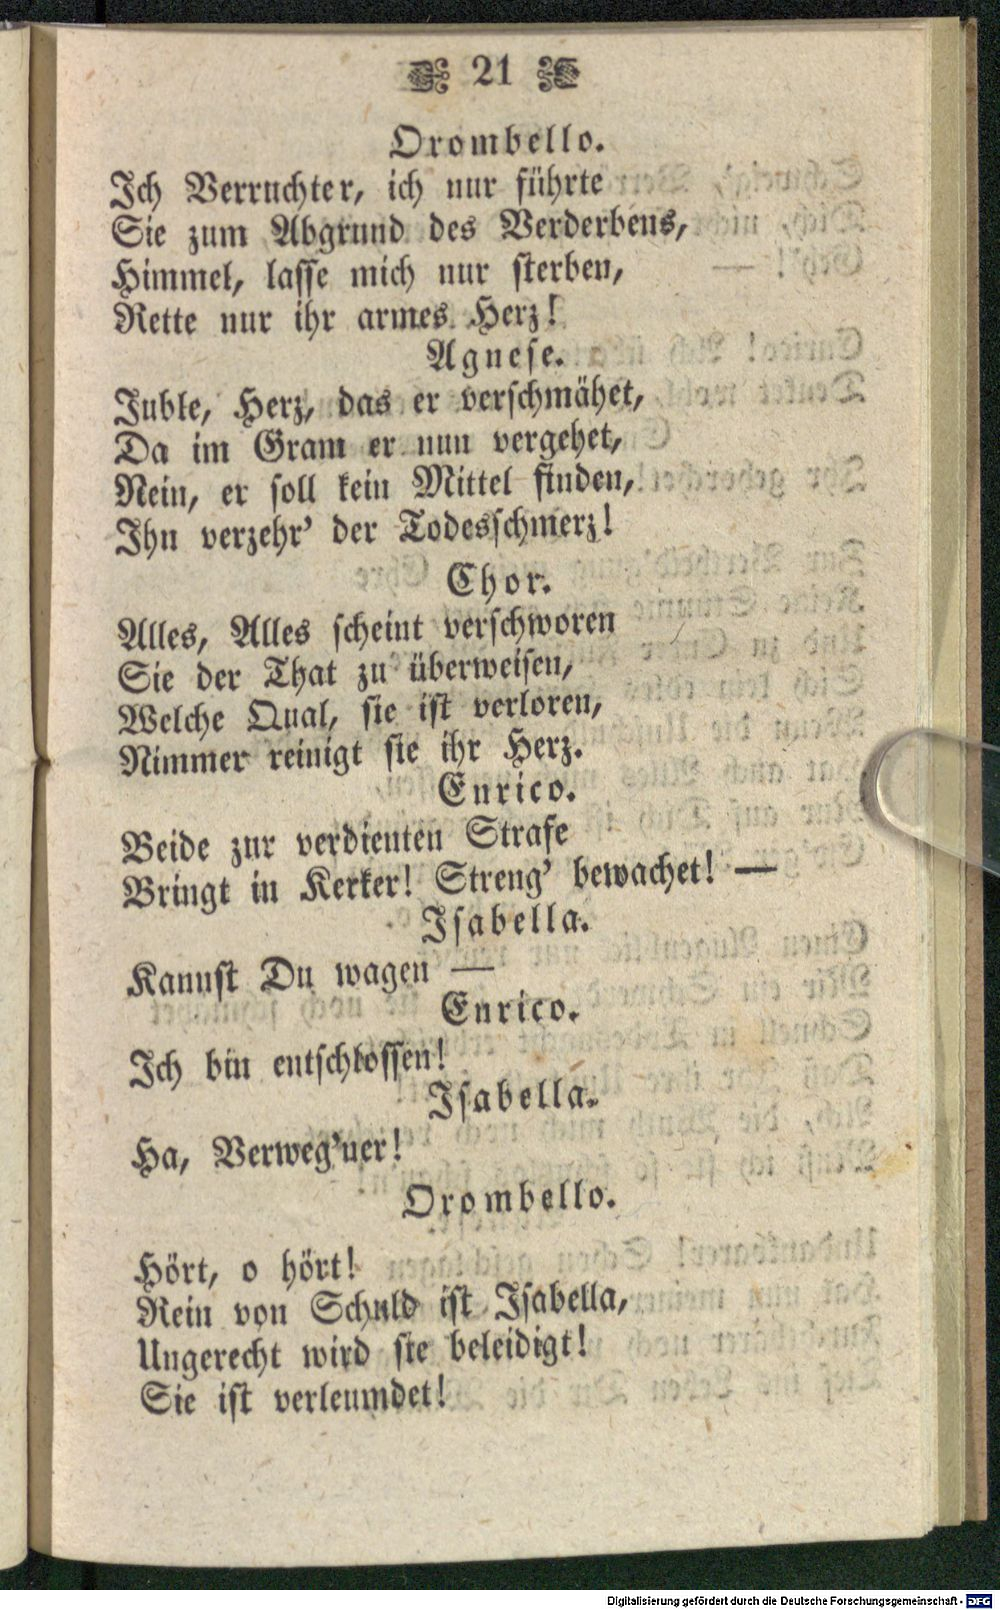 21
Orombello.
Ich Verruchter, ich nur führte
Sie zum Abgrund des Verderbens,
Himmel, lasse mich nur sterben,
Rette nur ihr armes Herz!
Agnese.
Juble, Herz, das er verschmähet,
Da im Gram er nun vergehet,
Nein, er soll kein Mittel finden,
Ihn verzehr' der Todesschmerz!
Chor.
Alles, Alles scheint verschworen
Sie der That zu überweisen,
Welche Qual, sie ist verloren,
Nimmer reinigt sie ihr Herz.
Enrico.
Beide zur verdienten Strafe
Bringt in Kerker! Streng' bewachet! —
Isabella.
Kannst Du wagen —
Enrico.
Ich bin entschlossen!
Isabella.
Ha, Verweg'ner!
Orombello.
Hört, o hört!
Rein von Schuld ist Isabella,
Ungerecht wird sie beleidigt!
Sie ist verleumdet!
Digitalisierung gefördert durch die Deutsche Forschungsgemeinschaft - DFG